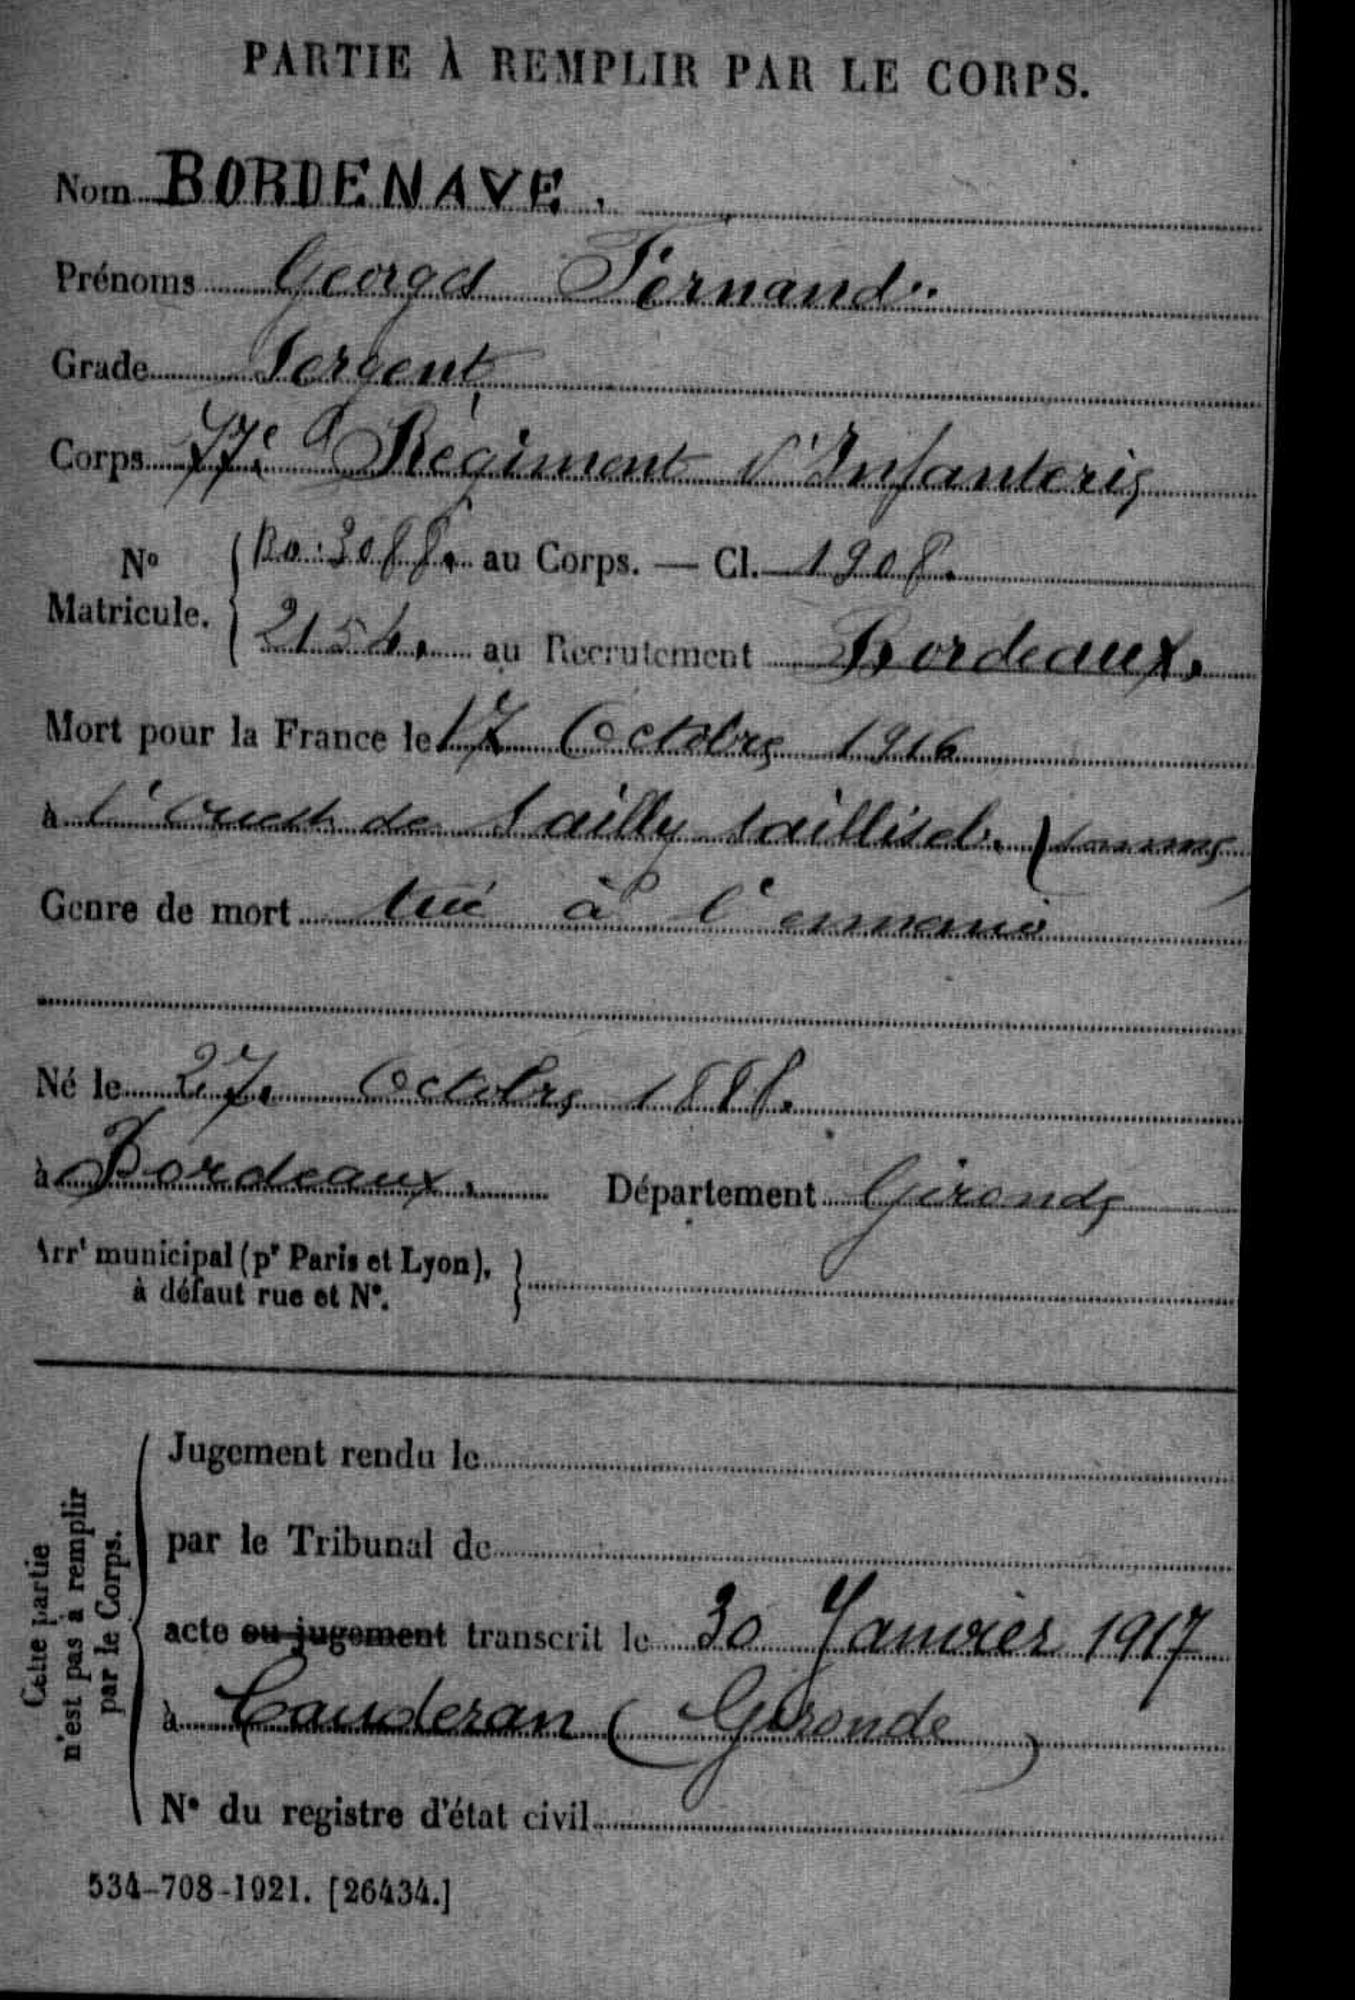 PARTIE À REMPLIR PAR LE CORPS.
Nom BORDENAVE.
Prénoms Georges Fernand.
Grade Sergent
Corps 77e Régiment d'Infanterie
No Matricule. 3088. au Corps. — Cl. 1908.
2154. au Recrutement Bordeaux.
Mort pour la France le 17 Octobre 1916
à l'Ouest de Sailly Saillisel. (Somme)
Genre de mort tué à l'ennemi
Né le 27 Octobre 1888.
à Bordeaux. Département Gironde
Arrt municipal (pr Paris et Lyon), à défaut rue et No.
Cette partie n'est pas à remplir par le Corps.
Jugement rendu le
par le Tribunal de
acte ou jugement transcrit le 30 Janvier 1917
à Cauderan (Gironde)
No du registre d'état civil
534-708-1921. [26434.]